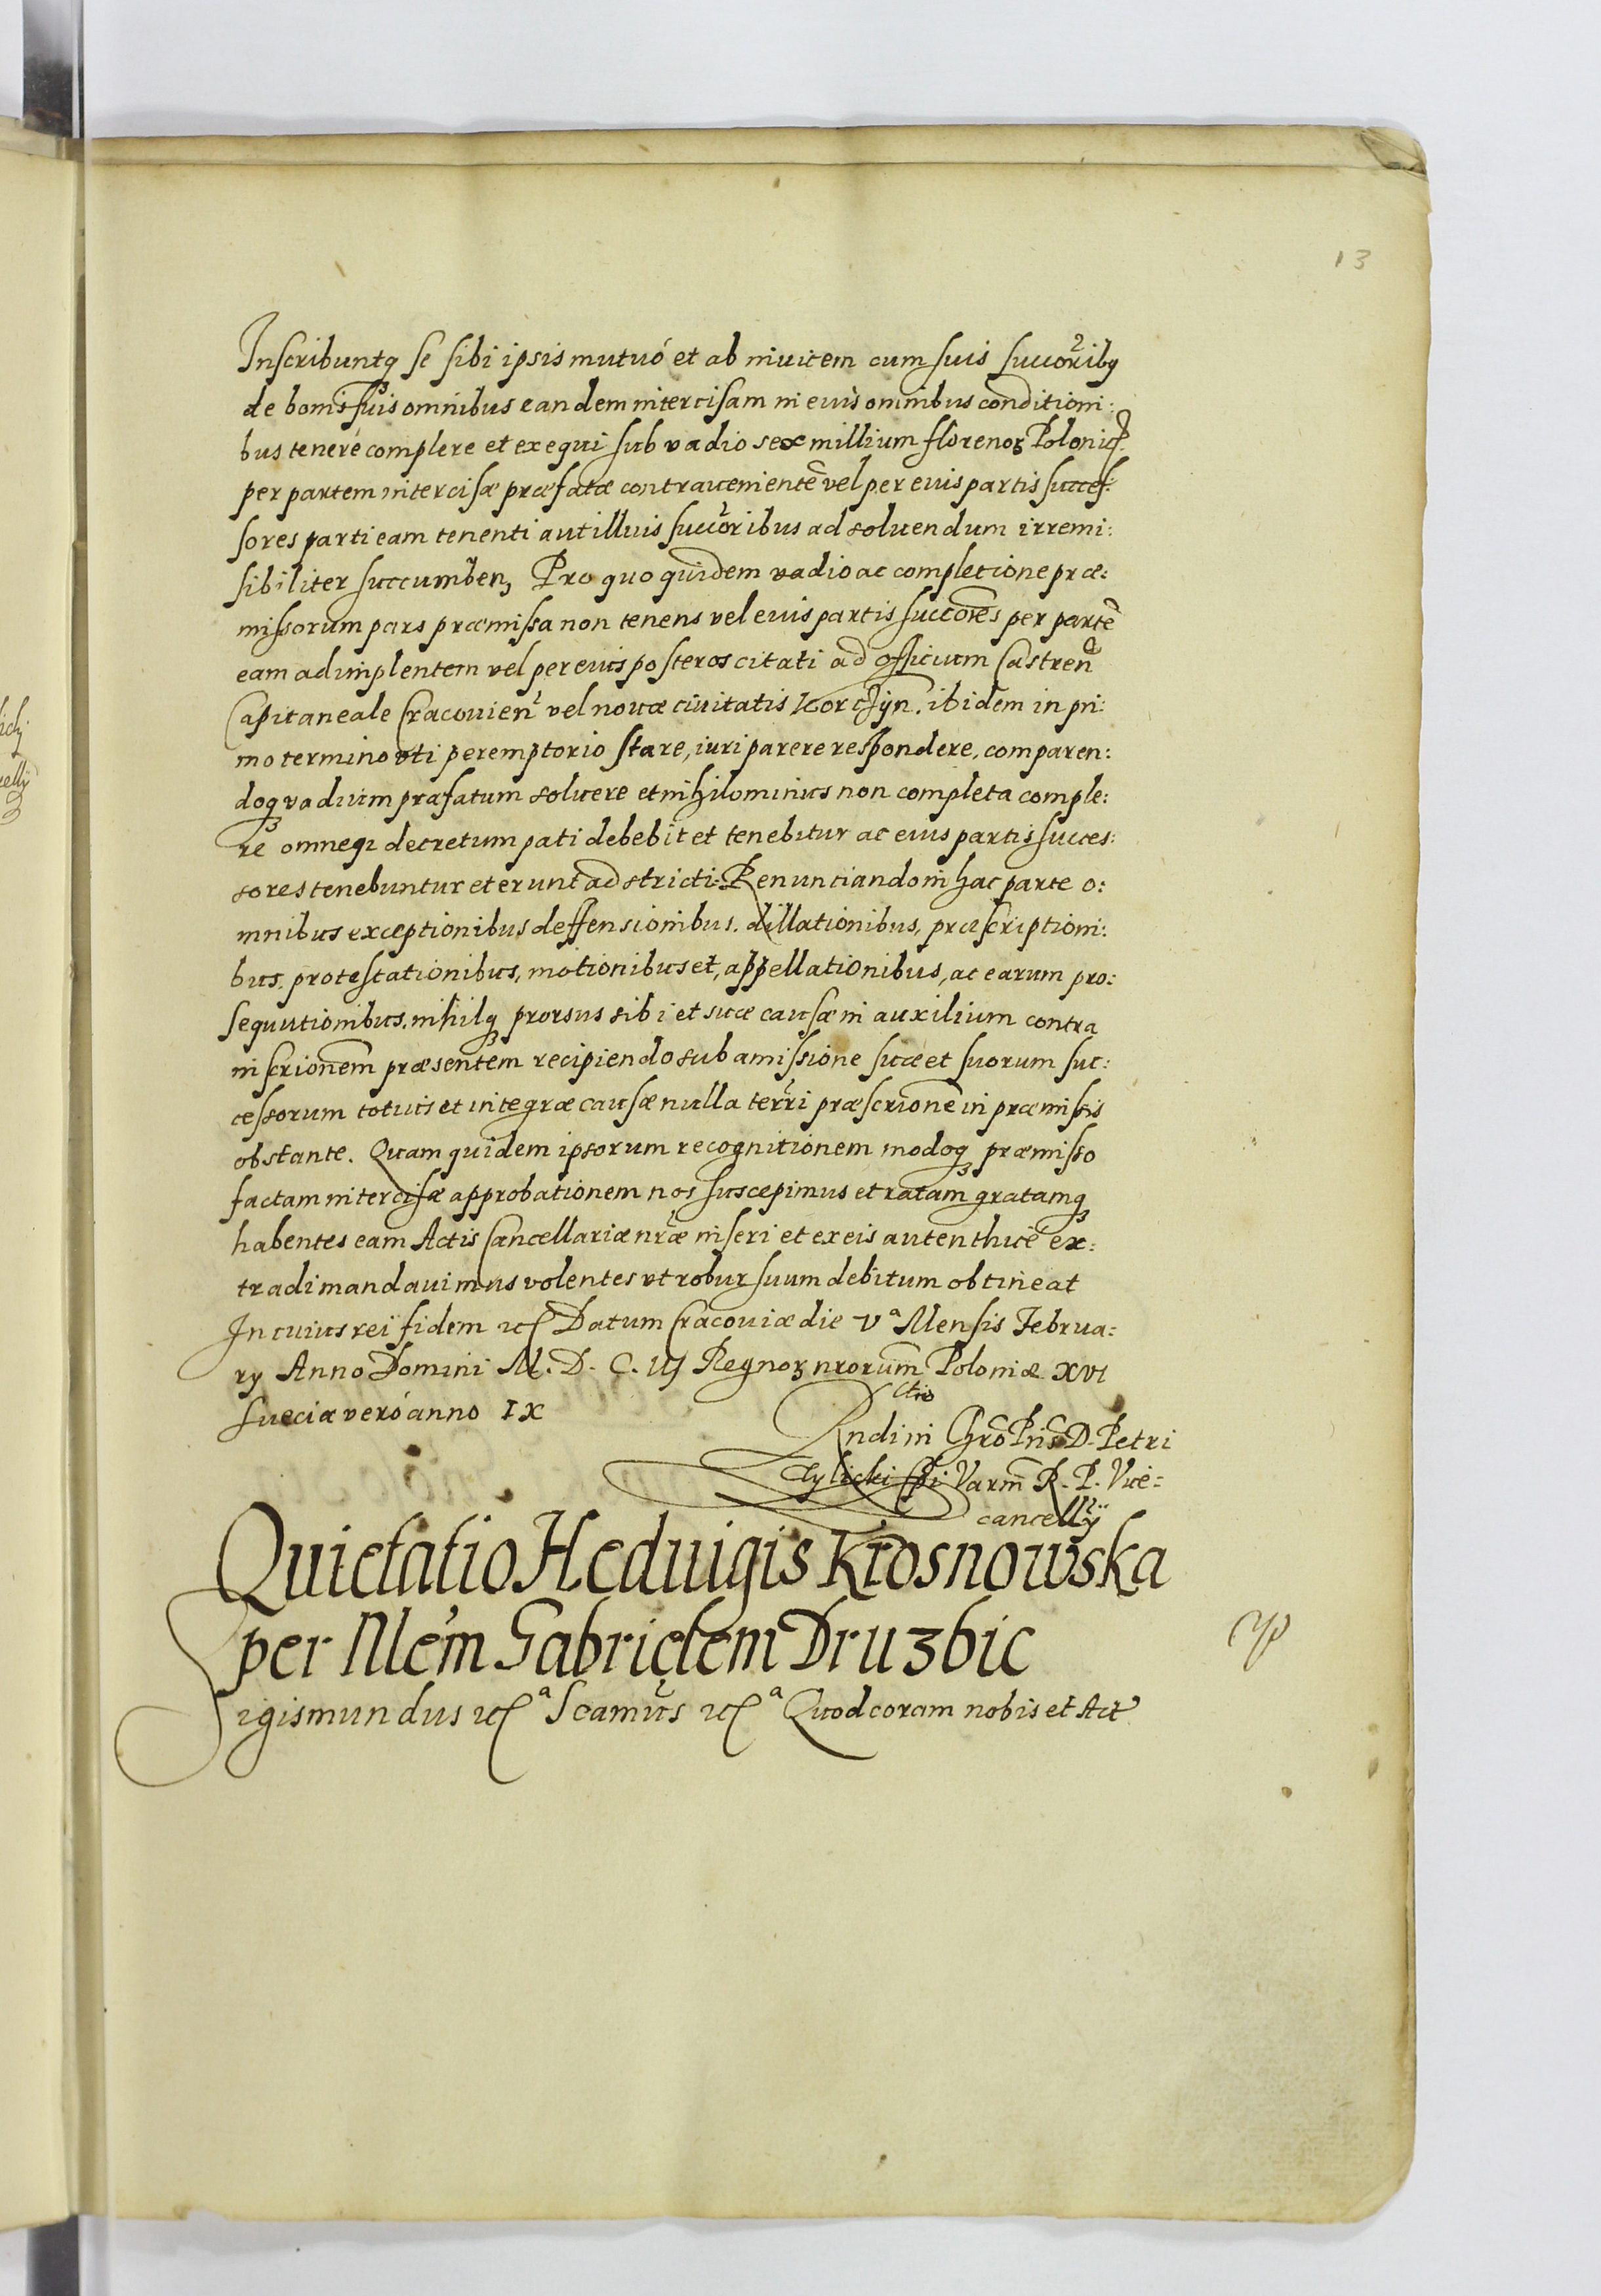 13
Inscribuntq se sibi ipsis mutuó et ab inuicem cum suis succoribq
de bonis suis omnibus eandem intercisam in euis omnibus conditioni:
bus teneré complere et exequi sub vadio sex millium florenoꝝ Polonic.
per partem intercisæ præfatæ contrauenientẽ vel per euis partis succes:
sores parti eam tenenti aut illuis succoribus ad soluendum irremi:
sibiliter succumbenꝫ Pro quo quidem vadio ac completione præ:
missorum pars præmissa non tenens vel euis partis succores per partẽ
eam adimplentem vel per euis posteros citati ad officium Castren
Capitaneale Cracouien vel nouæ ciuitatis Korcżyn. ibidem in pri:
mo termino vti peremptorio stare, iuri parere respondere, comparen:
doq vadium præfatum soluere et nihilominus non completa comple:
re omneqꝫ decretum pati debebit et tenebitur ac euis partis succes:
sores tenebuntur et erunt adstricti: Renunciando in hac parte o:
mnibus exceptionibus deffensionibus. dillationibus, præscriptioni:
bus, protestationibus, motionibus et, appellationibus, ac earum pro:
sequutionibus, nihilq prorsus sibi et suæ causæ in auxilium contra
inscrionem præsentem recipiendo sub amissione suæ et suorum suc:
cessorum totuis et integræ causæ nulla terri præscrione in præmissis
obstante. Quam quidem ipsorum recognitionem modoq præmisso
factam intercisæ approbationem nos suscepimus et ratam gratamq
habentes eam Actis Cancellariæ nræ inseri et ex eis autenthicè ex:
tradi mandauimus volentes vt robur suum debitum obtineat
In cuius rei fidem etc Datum Cracouiæ die Vª Mensis Februa:
ry Anno Domini M. D. C. IIJ Regnoꝝ nrorum Poloniæ XVI
sueciæ veró anno IX
Rndi in Chro Pris D. Petri
Tylicki Epi Varm R. P. Vice=
cancellÿ
Quietatio Heduigis Krosnowska
per Mem Gabrielem Druzbic
Sigismundus etcª Scamus etcª Quod coram nobis et Act